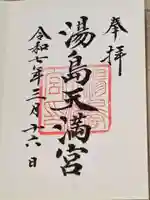 奉拝
湯島天満宮
令和七年三月十六日